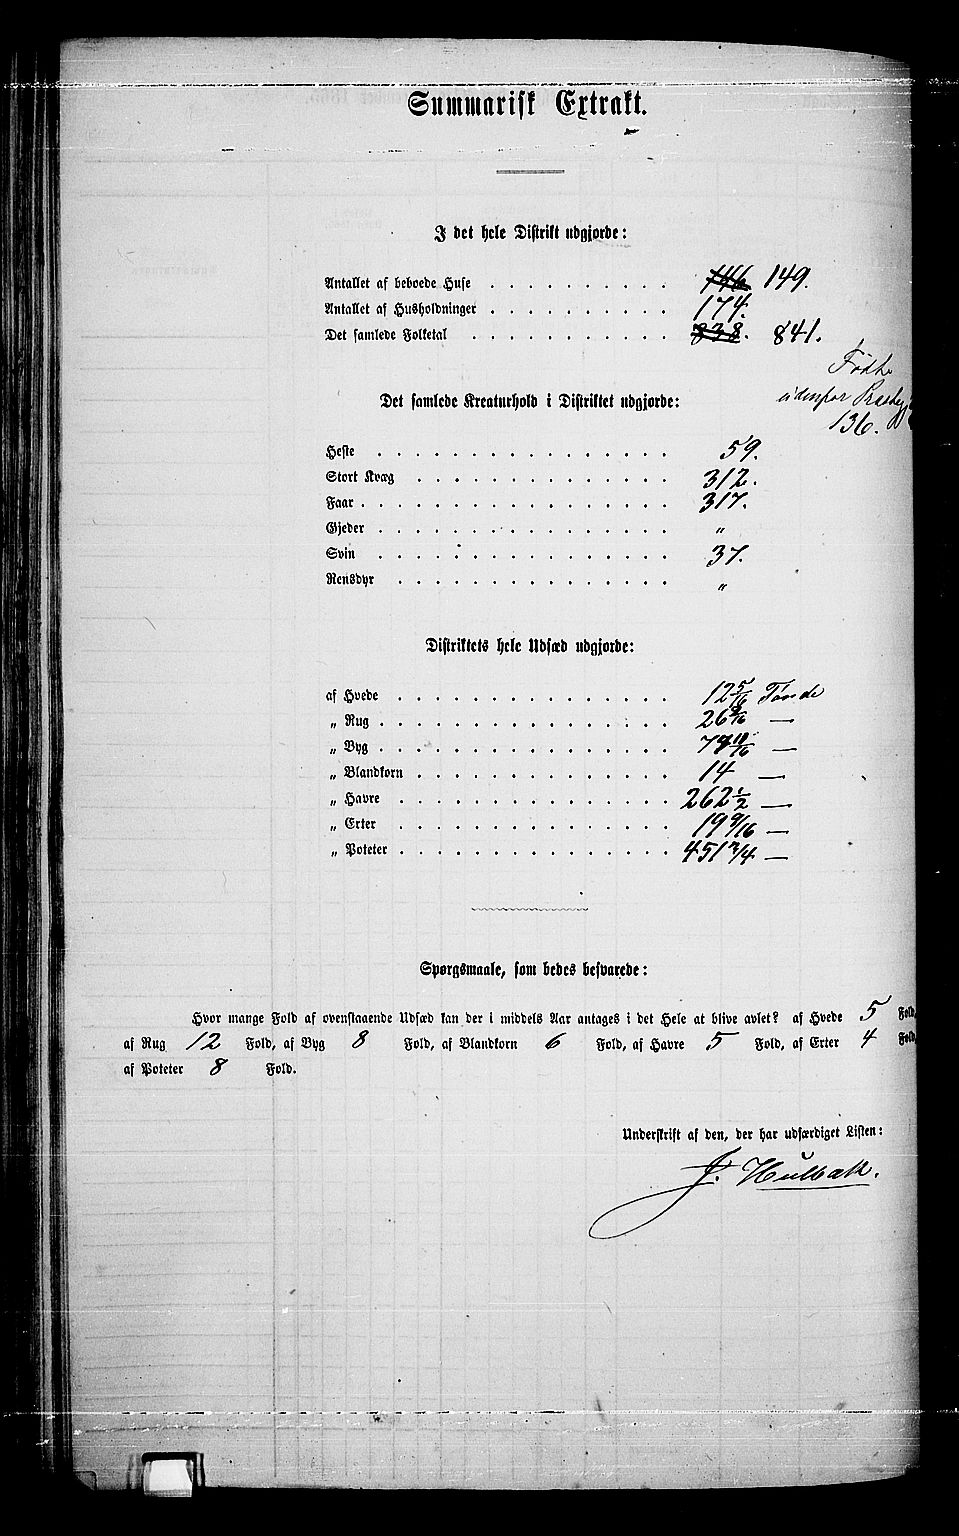 Summarisk Extrakt.
I det hele Distrikt udgjorde:
Antallet af beboede Huse . . . . . . . . . . 146 149.
Antallet af Husholdninger . . . . . . . . . . 174.
Det samlede Folketal . . . . . . . . . . . 838. 841.
Fødte
udenfor
136.
Det samlede Kreaturhold i Distriktet udgjorde:
Heste . . . . . . . . . . . . . . . . 59.
Stort Kvæg . . . . . . . . . . . . . . 312.
Faar . . . . . . . . . . . . . . . . . 317.
Gjeder . . . . . . . . . . . . . . . . „
Svin . . . . . . . . . . . . . . . . 37.
Rensdyr . . . . . . . . . . . . . . . „
Distriktets hele Udsæd udgjorde:
af Hvede . . . . . . . . . . . . . . . 12 5/16 Tønde
„ Rug . . . . . . . . . . . . . . . . 26 —
„ Byg . . . . . . . . . . . . . . . . 10/16 —
„ Blandkorn . . . . . . . . . . . . . . 14 —
„ Havre . . . . . . . . . . . . . . . 262 1/2 —
„ Erter . . . . . . . . . . . . . . . 19 9/16 —
„ Poteter . . . . . . . . . . . . . . . 451 3/4 —
Spørgsmaale, som bedes besvarede:
Hvor mange Fold af ovenstaaende Udsæd kan der i middels Aar antages i det Hele at blive avlet? af Hvede 5 Fold,
af Rug 12 Fold, af Byg 8 Fold, af Blandkorn 6 Fold, af Havre 5 Fold, af Erter 4 Fold,
af Poteter 8 Fold.
Underskrift af den, der har udfærdiget Listen:
J. Hulbak.